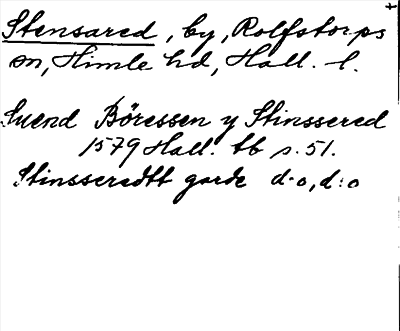 Stensared, by, Rolfstorps
sn, Himle hd, Hall. l.
Svend Böressen y Stinssered
1579 Hall. tb s. 51.
Stinsseredtt garde d:o, d:o